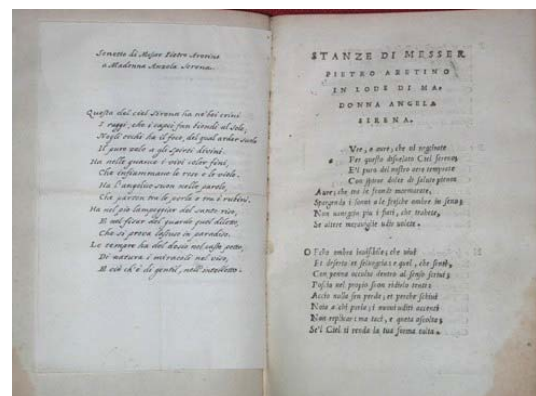 Sonetto di Messer Pietro Aretino
a Madonna Angela Serena.
Questa del ciel Sirena ha ne' bei crini
I raggi, che i capei fan biondi al Sole,
Negli occhi ha il foco, del qual arder suole
Il puro zelo a gli spirti divini.
Ha nelle guancie i vivi color fini,
Che infiammano le rose e le viole.
Ha l'angelico suon nelle parole,
Che parton tra le perle e tra i rubini.
Ha nel pio lampeggiar del santo riso,
E nel ficar del guardo quel diletto,
Che si prova lassuso in paradiso.
Le tempre ha del dosio nel casto petto,
Di natura i miracoli nel viso,
E ciò ch'è di gentil, nell'intelletto.
STANZE DI MESSER
PIETRO ARETINO
IN LODE DI MA-
DONNA ANGELA
SERENA.
e aure, che vi
Per questo Ciel sereno,
E'l puro del nostro aere
Con spirar dolce di salute pieno,
Aure, che tra le mormorate,
Spargendo i fiori a le fresche ombre in seno;
Non
Se altere meraviglie udir volete.
O Felici ombre invisibili, che
Et deserti et e quel, che
Con penna occulta dentro al senso
Posta nel proprio suon
Accio nulla sen perda; et perche
Noia a chi parla; i nuovi uditi accenti
Non replicar; ma taci, e queta ascolta;
Se'l Ciel ti renda la tua forma tolta.